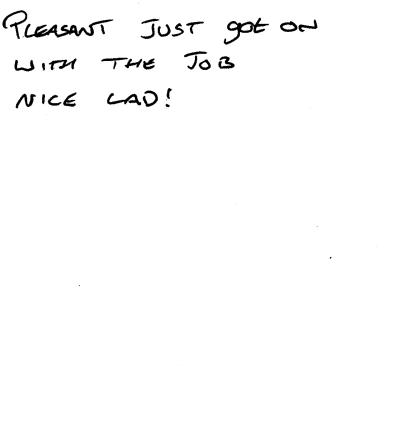 PLEASANT JUST got on
WITH THE JOB
NICE LAD!